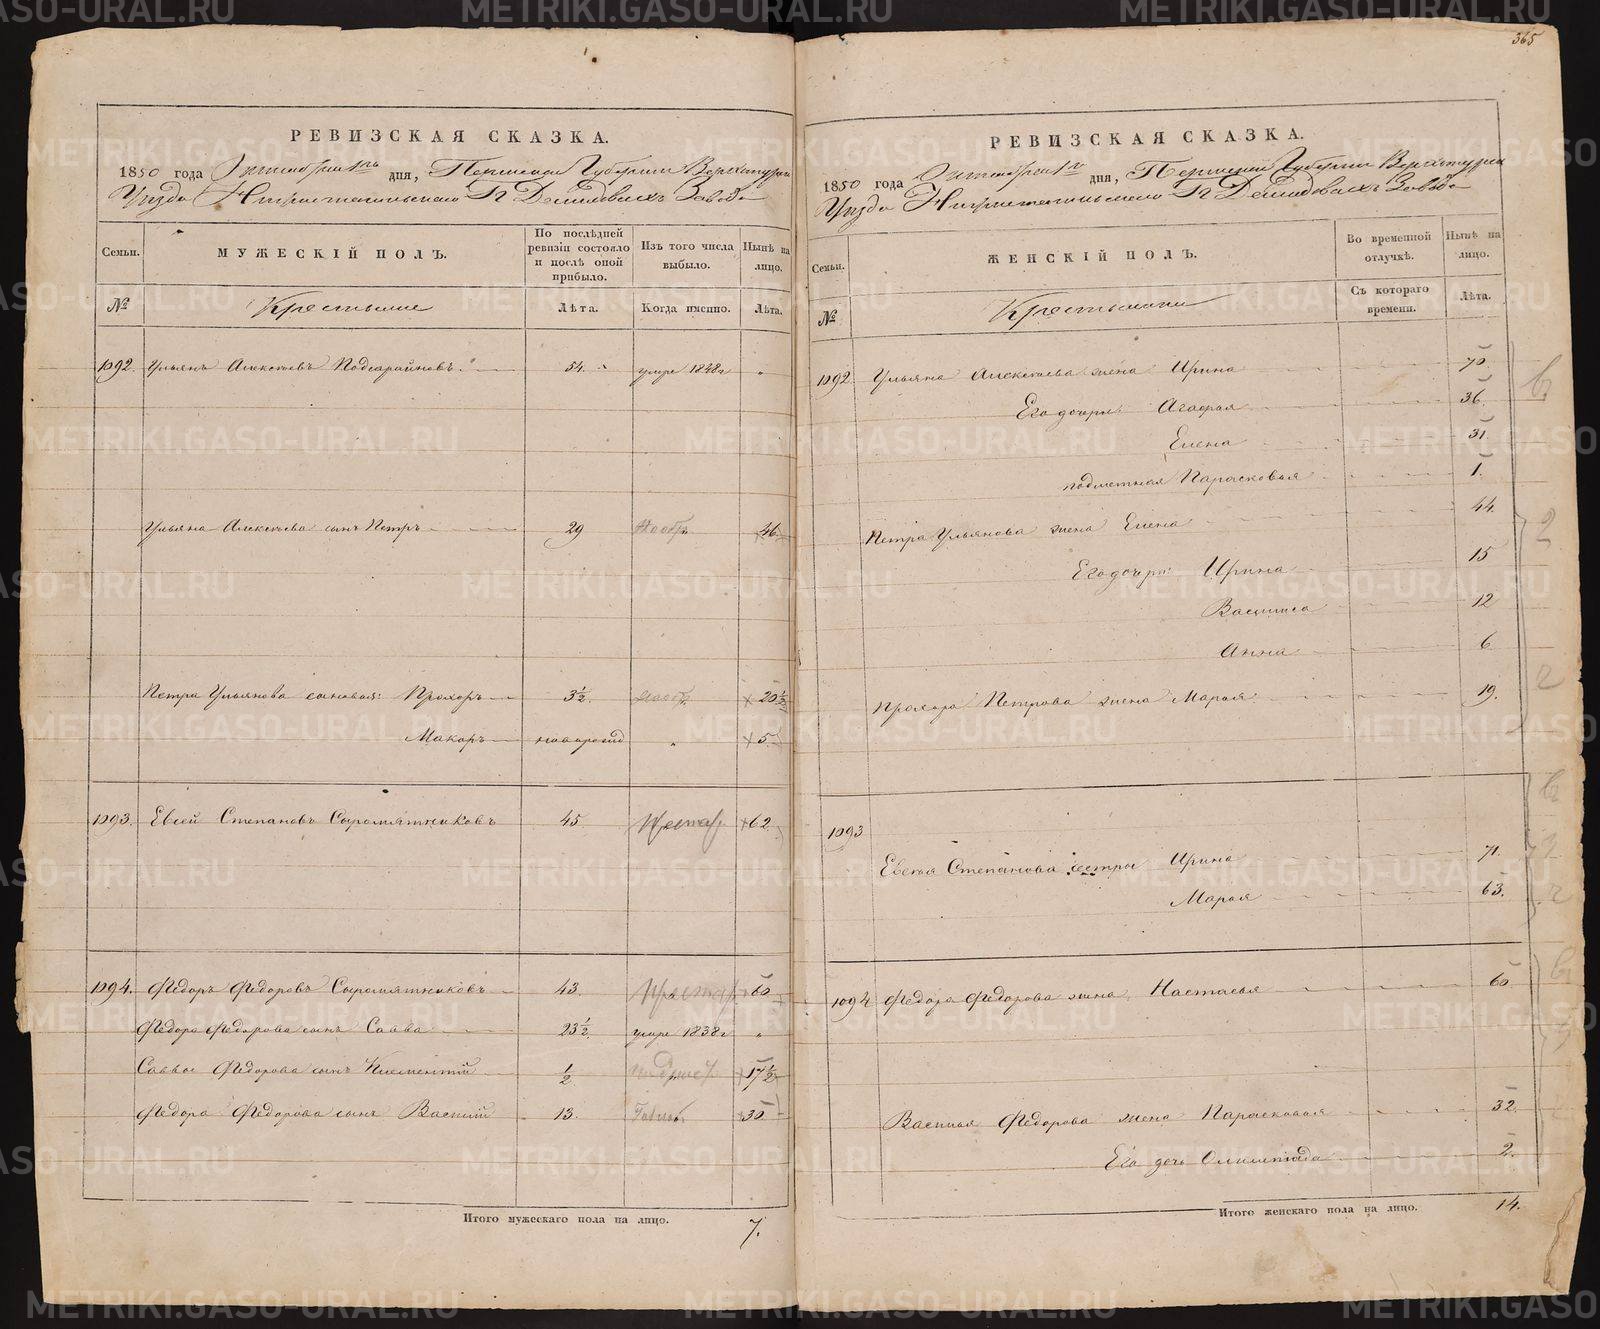 РЕВИЗСКАЯ СКАЗКА.
1850 года Октября 1го дня, Пермской Губернии Верхотурск
Уезда Нижнетагильскаго Гг Демидовыхъ Завода
Семьи.
МУЖЕСКІЙ ПОЛЪ.
По послѣдней ревизіи состояло и послѣ оной прибыло.
Изъ того числа выбыло.
Нынѣ на лицо.
№
Крестьяне
Лѣта.
Когда именно.
Лѣта.
1092. Ульянъ Алексѣевъ Подсарайновъ. 54. умре 1848 г "
Ульяна Алексѣева сынъ Петръ 29 46.
Петра Ульянова сыновья: Прохоръ 3½. 20½
Макаръ новорожд " 5.
1093. Евсей Степановъ Сыромятниковъ 45 62
1094. Федоръ Федоровъ Сыромятниковъ 43. 60
Федора Федорова сынъ Савва 23½. умре 1838 г "
Саввы Федорова сынъ Климентій ½ 17½
Федора Федорова сынъ Василій 13. 30
Итого мужескаго пола на лицо. 7.
365
РЕВИЗСКАЯ СКАЗКА.
1850 года Октября 1го дня, Пермской Губернии Верхотурск
Уезда Нижнетагильскаго Гг Демидовыхъ Завода
Семьи.
ЖЕНСКІЙ ПОЛЪ.
Во временной отлучкѣ.
Нынѣ на лицо.
№
Крестьянки
Съ котораго времени.
Лѣта.
1092 Ульяна Алексѣева жена Ирина 70.
Его дочери: Агафья 36.
Елена 31.
подметная Парасковья 1.
Петра Ульянова жена Елена 44.
Его дочери: Ирина 15
Васлиса 12
Анна 6
Прохора Петрова жена Марья 19.
1093
Евсея Степанова сестры Ирина 71.
Марья 63.
1094 Федора Федорова жена Настасья 60
Василья Федорова жена Парасковья 32.
Его дочь Олимпіада 2.
Итого женскаго пола на лицо. 14.
METRIKI.GASO-URAL.RU